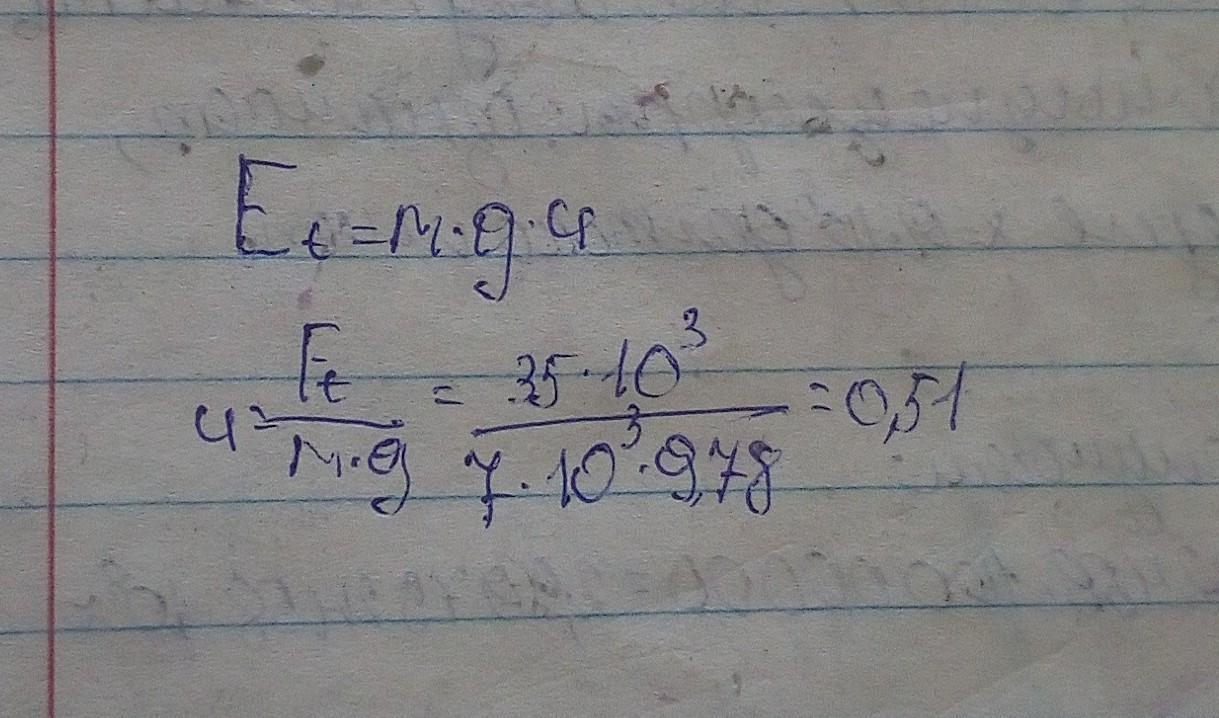 E t = m · g · u
u = Ft / m · g = 35 · 10³ / 7 · 10³ · 9,78 = 0,51